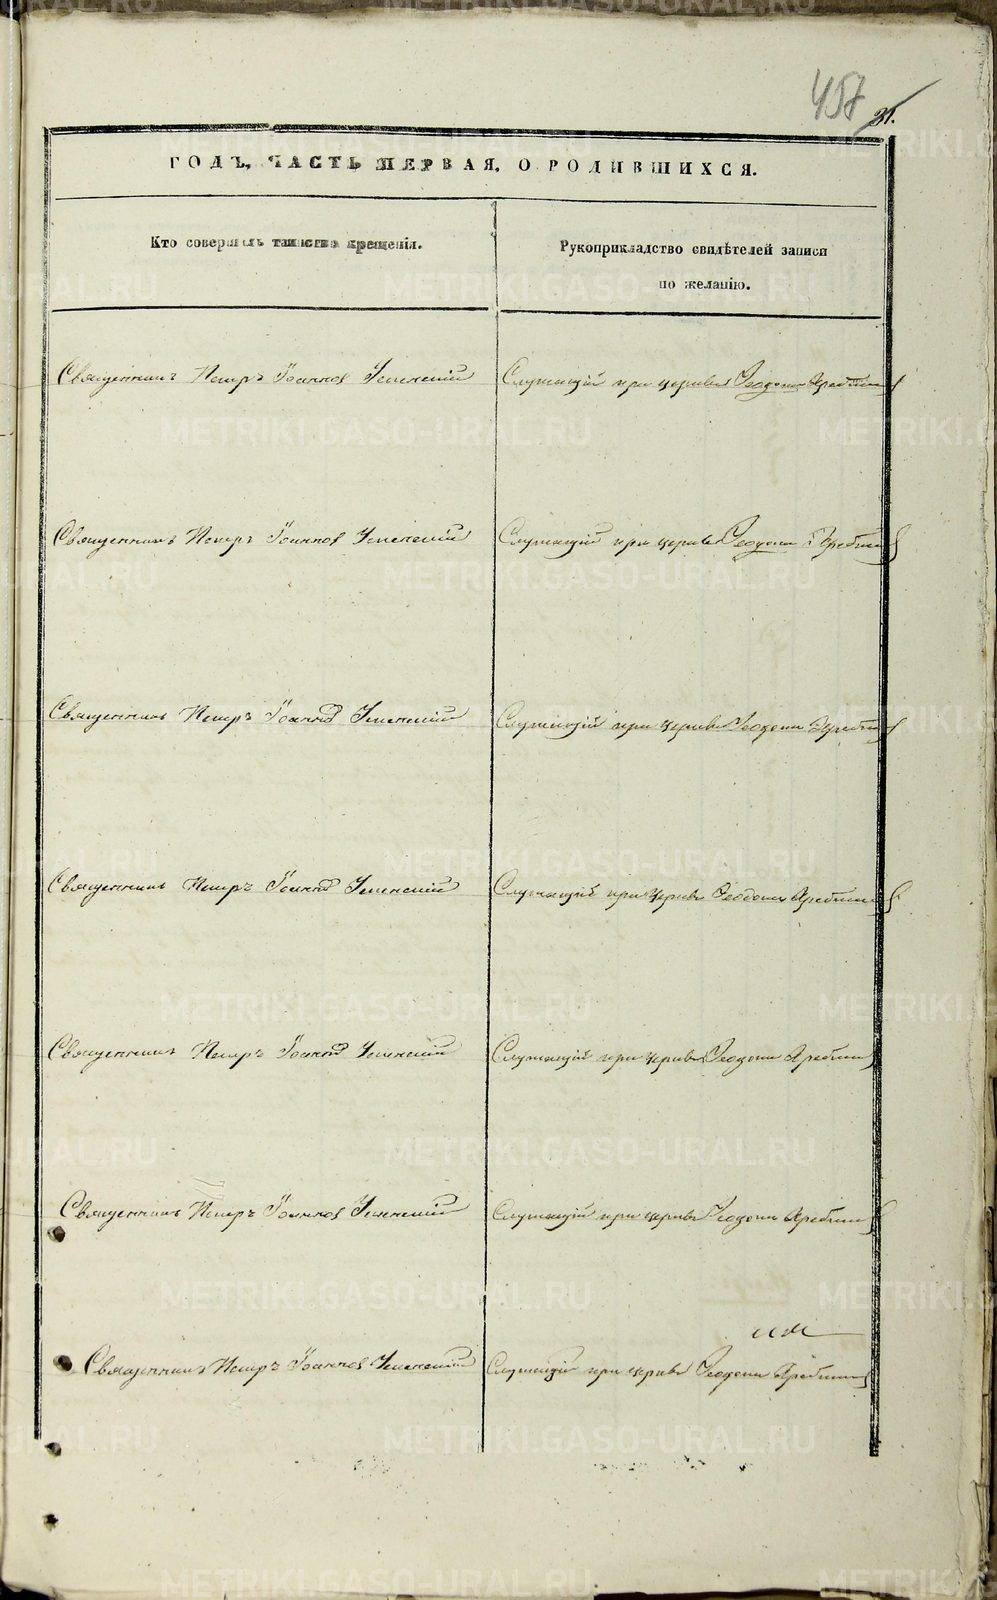 457
31.
ГОДЪ, ЧАСТЬ ПЕРВАЯ, О РОДИВШИХСЯ.
Кто совершалъ таинство крещенія.
Рукоприкладство свидѣтелей записи
по желанію.
Священникъ Петръ Іоанновъ Успенскій
Служащій при церкви Ѳеодоръ
Священникъ Петръ Іоанновъ Успенскій
Служащій при церкви Ѳеодоръ
Священникъ Петръ Іоанновъ Успенскій
Служащій при церкви Ѳеодоръ
Священникъ Петръ Іоанновъ Успенскій
Служащій при церкви Ѳеодоръ
Священникъ Петръ Іоанновъ Успенскій
Служащій при церкви Ѳеодоръ
Священникъ Петръ Іоанновъ Успенскій
Служащій при церкви Ѳеодоръ
Священникъ Петръ Іоанновъ Успенскій
Служащій при церкви Ѳеодоръ
METRIKI.GASO-URAL.RU